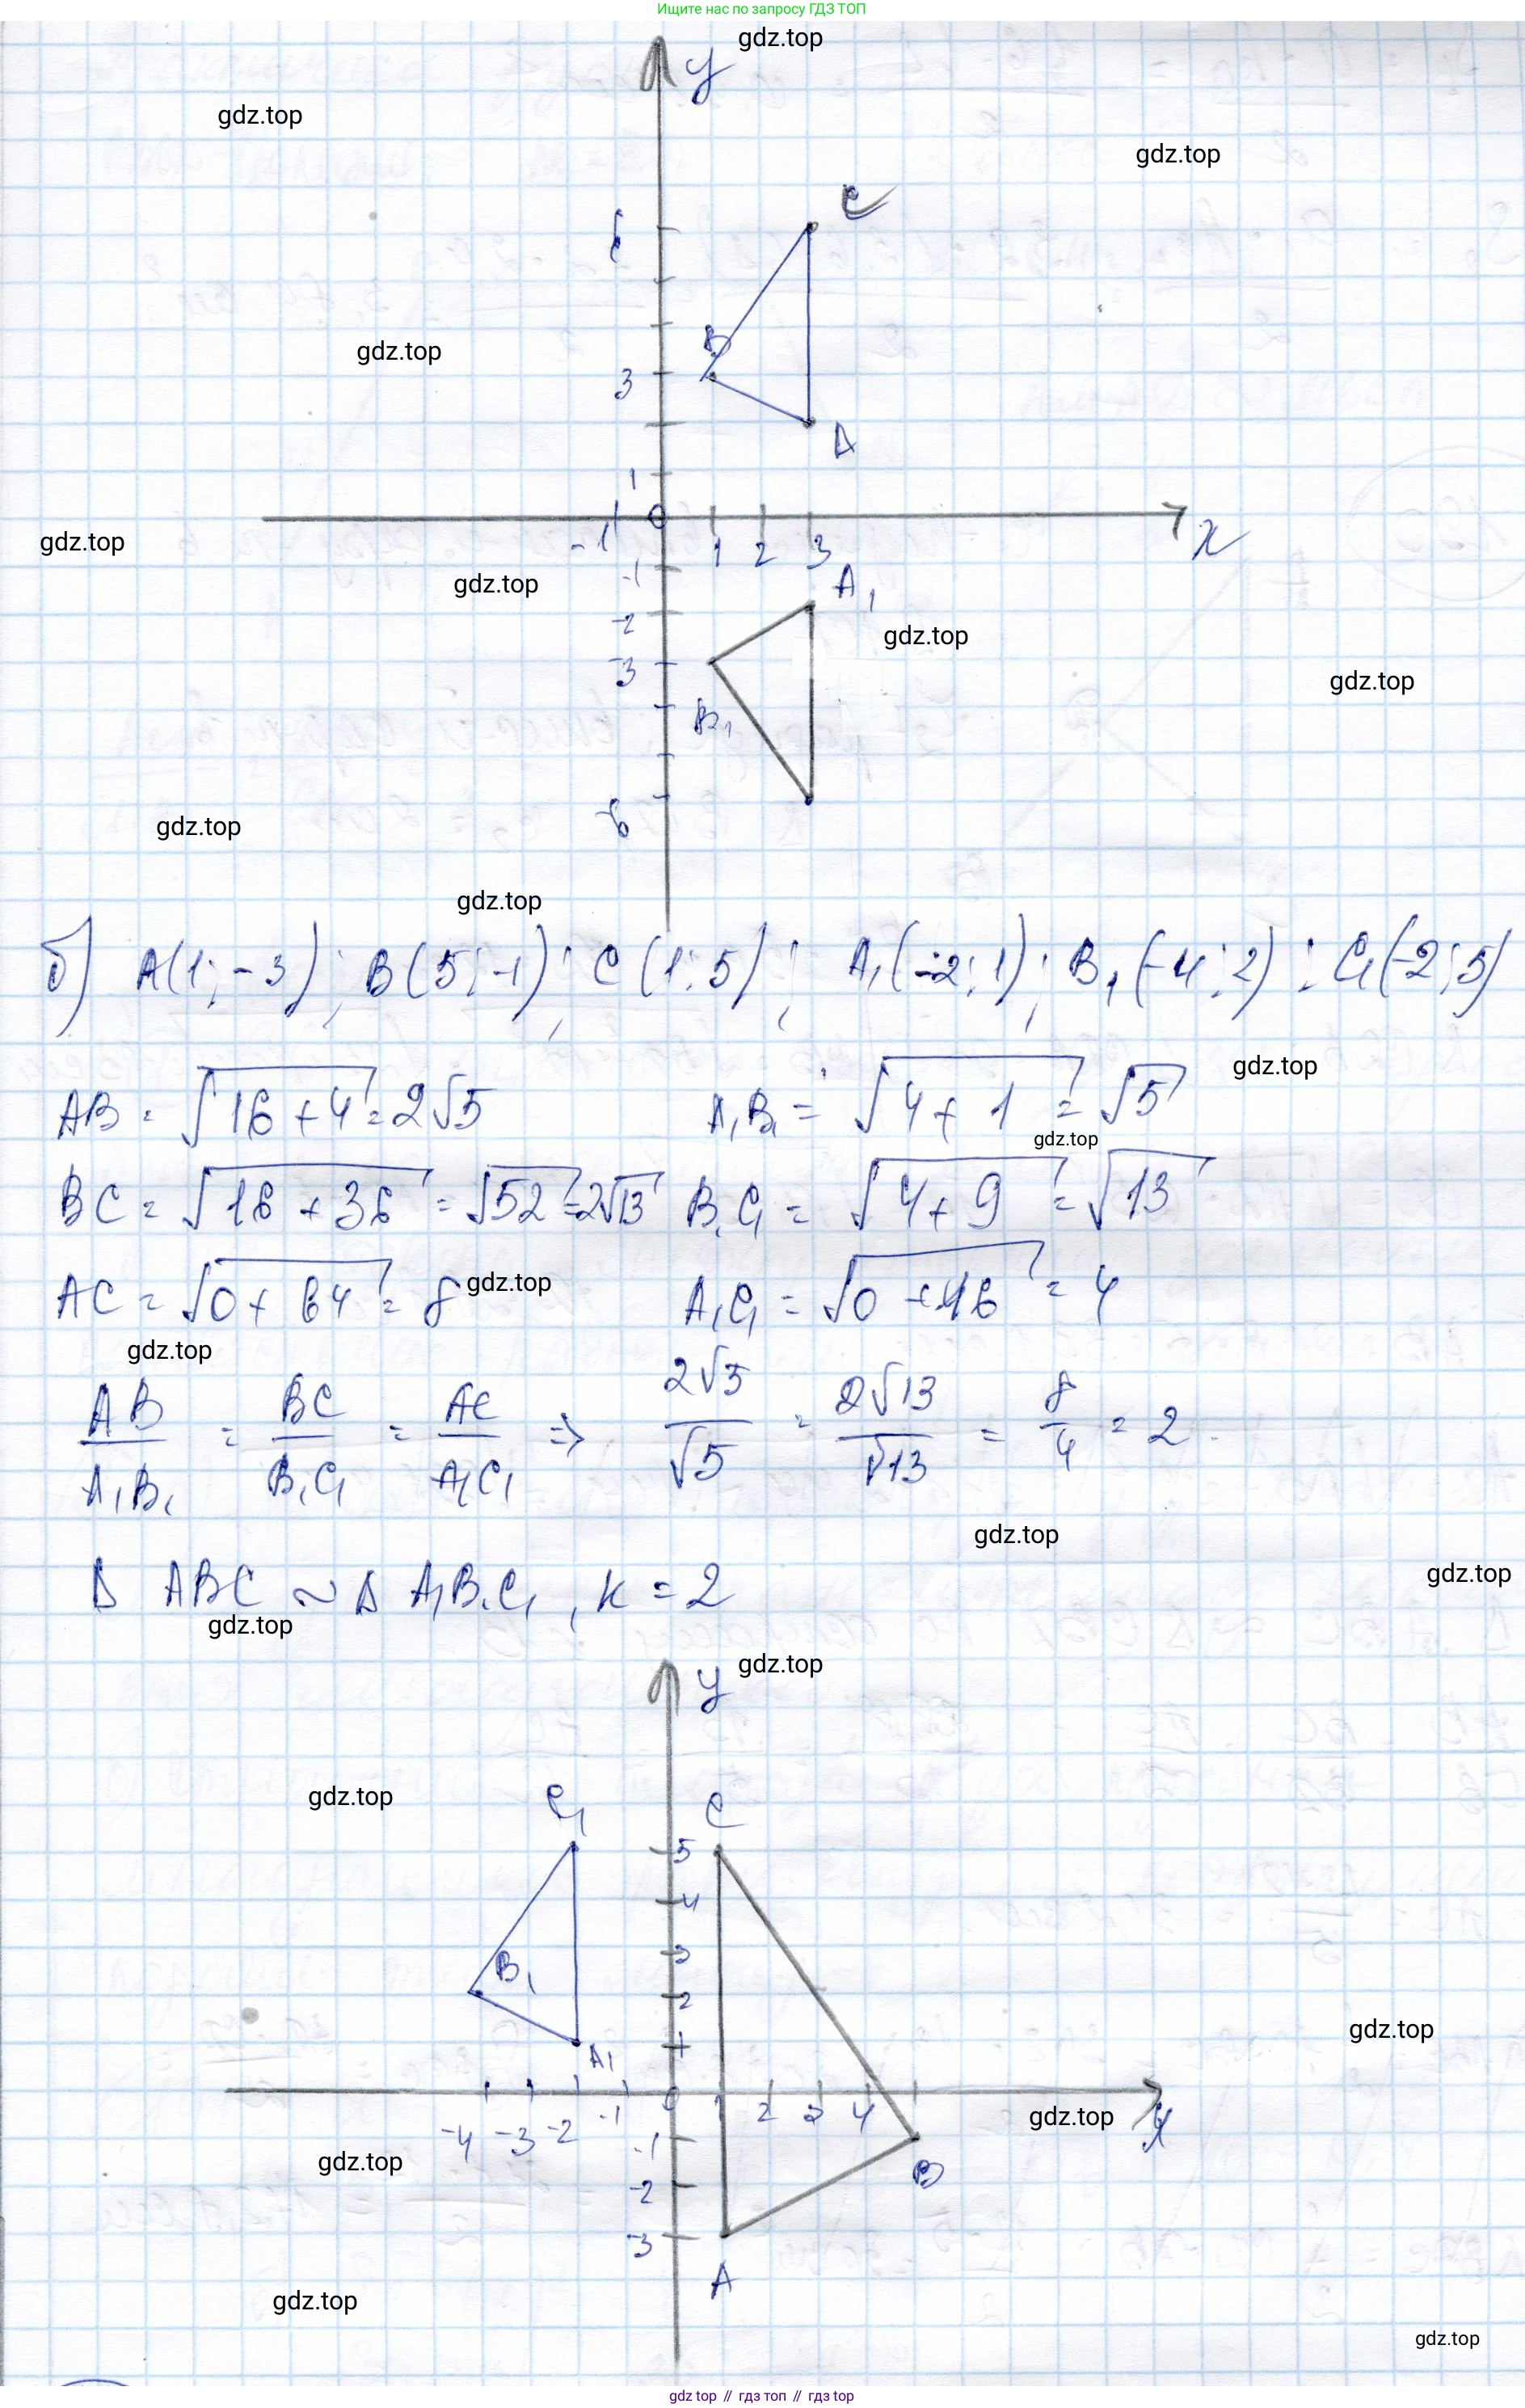 Ищите нас по запросу ГДЗ ТОП
gdz.top
y
gdz.top
gdz.top
C
6
B
gdz.top
3
A
1
0
gdz.top
-1 1 2 3
x
-1
A₁
gdz.top
-2
gdz.top
-3
gdz.top
B₁
-6
gdz.top
gdz.top
б) A(1; -3); B(5; -1); C(1; 5); A₁(-2; 1); B₁(-4; 2); C₁(-2; 5)
gdz.top
AB = √16 + 4 = 2√5 A₁B₁ = √4 + 1 = √5
gdz.top
BC = √16 + 36 = √52 = 2√13 B₁C₁ = √4 + 9 = √13
AC = √0 + 64 = 8 A₁C₁ = √0 + 16 = 4
gdz.top
gdz.top
AB/A₁B₁ = BC/B₁C₁ = AC/A₁C₁ => 2√5/√5 = 2√13/√13 = 8/4 = 2
gdz.top
gdz.top
Δ ABC ~ Δ A₁B₁C₁, k = 2
gdz.top
gdz.top
y
gdz.top
C₁
C
5
4
3
B₁
2
gdz.top
1
A₁
0
-4 -3 -2 -1 1 2 3 4
gdz.top
x
-1
gdz.top
B
-2
-3
A
gdz.top
gdz.top
gdz top // гдз топ // гдз top